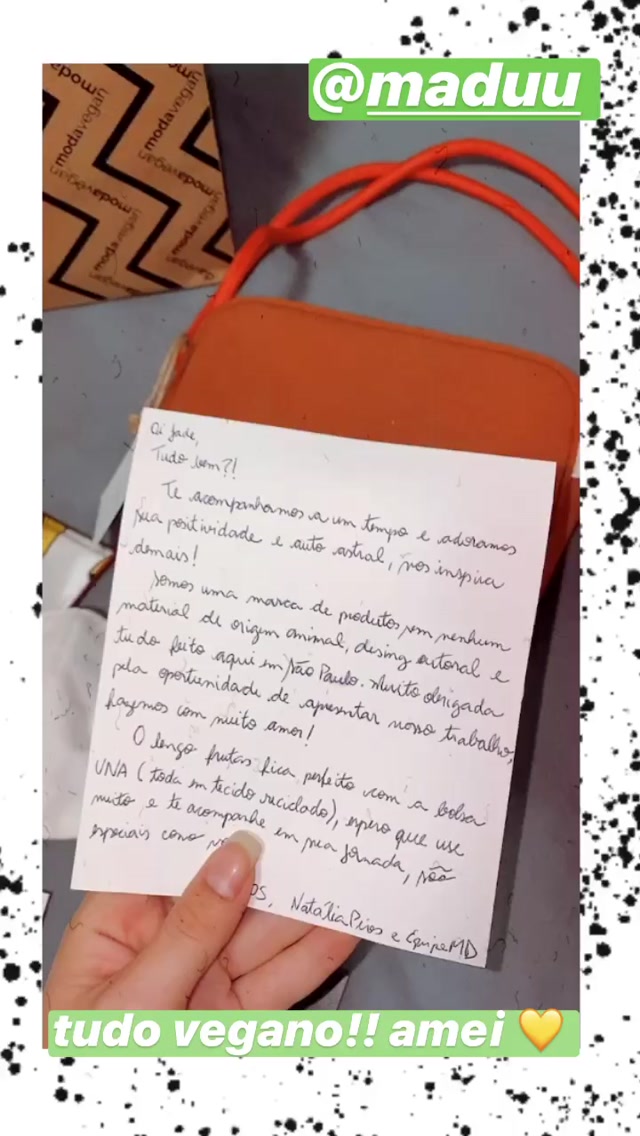 @maduu
modavegan
modavegan
modavegan
modavegan
Oi Jade,
Tudo bem?!
Te acompanhamos a um tempo e adoramos
sua positividade e auto astral, nos inspira
demais!
Somos uma marca de produtos sem nenhum
material de origem animal, desing autoral e
tudo feito aqui em São Paulo. Muito obrigada
pela oportunidade de apresentar nosso trabalho,
fazemos com muito amor!
O lenço frutas fica perfeito com a bolsa
UNA (toda em tecido reciclado), espero que use
muito e te acompanhe em sua jornada, são
especiais como
os, Natália Pires e Equipe MD
tudo vegano!! amei 💛